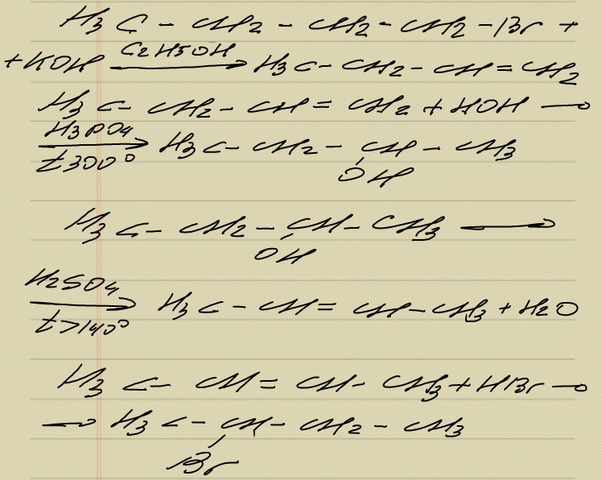 H₃C - CH₂ - CH₂ - CH₂ - Br +
+ KOH C₂H5OH → H₃C - CH₂ - CH = CH₂
H₃C - CH₂ - CH = CH₂ + HOH →
H₃PO₄ → H₃C - CH₂ - CH - CH₃
t 300° OH
H₃C - CH₂ - CH - CH₃ →
OH
H₂SO₄ → H₃C - CH = CH - CH₃ + H₂O
t > 140°
H₃C - CH = CH - CH₃ + HBr →
→ H₃C - CH - CH₂ - CH₃
Br